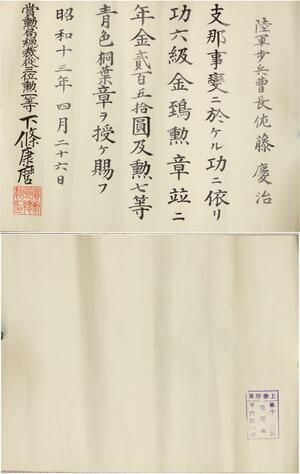 陸軍步兵曹長佐藤慶治
支那事變ニ於ケル功ニ依リ
功六級金鵄勲章竝ニ
年金貳百五拾圓及勲七等
靑色桐葉章ヲ授ケ賜フ
昭和十三年四月二十六日
賞勲局總裁從三位勲一等下條康麿